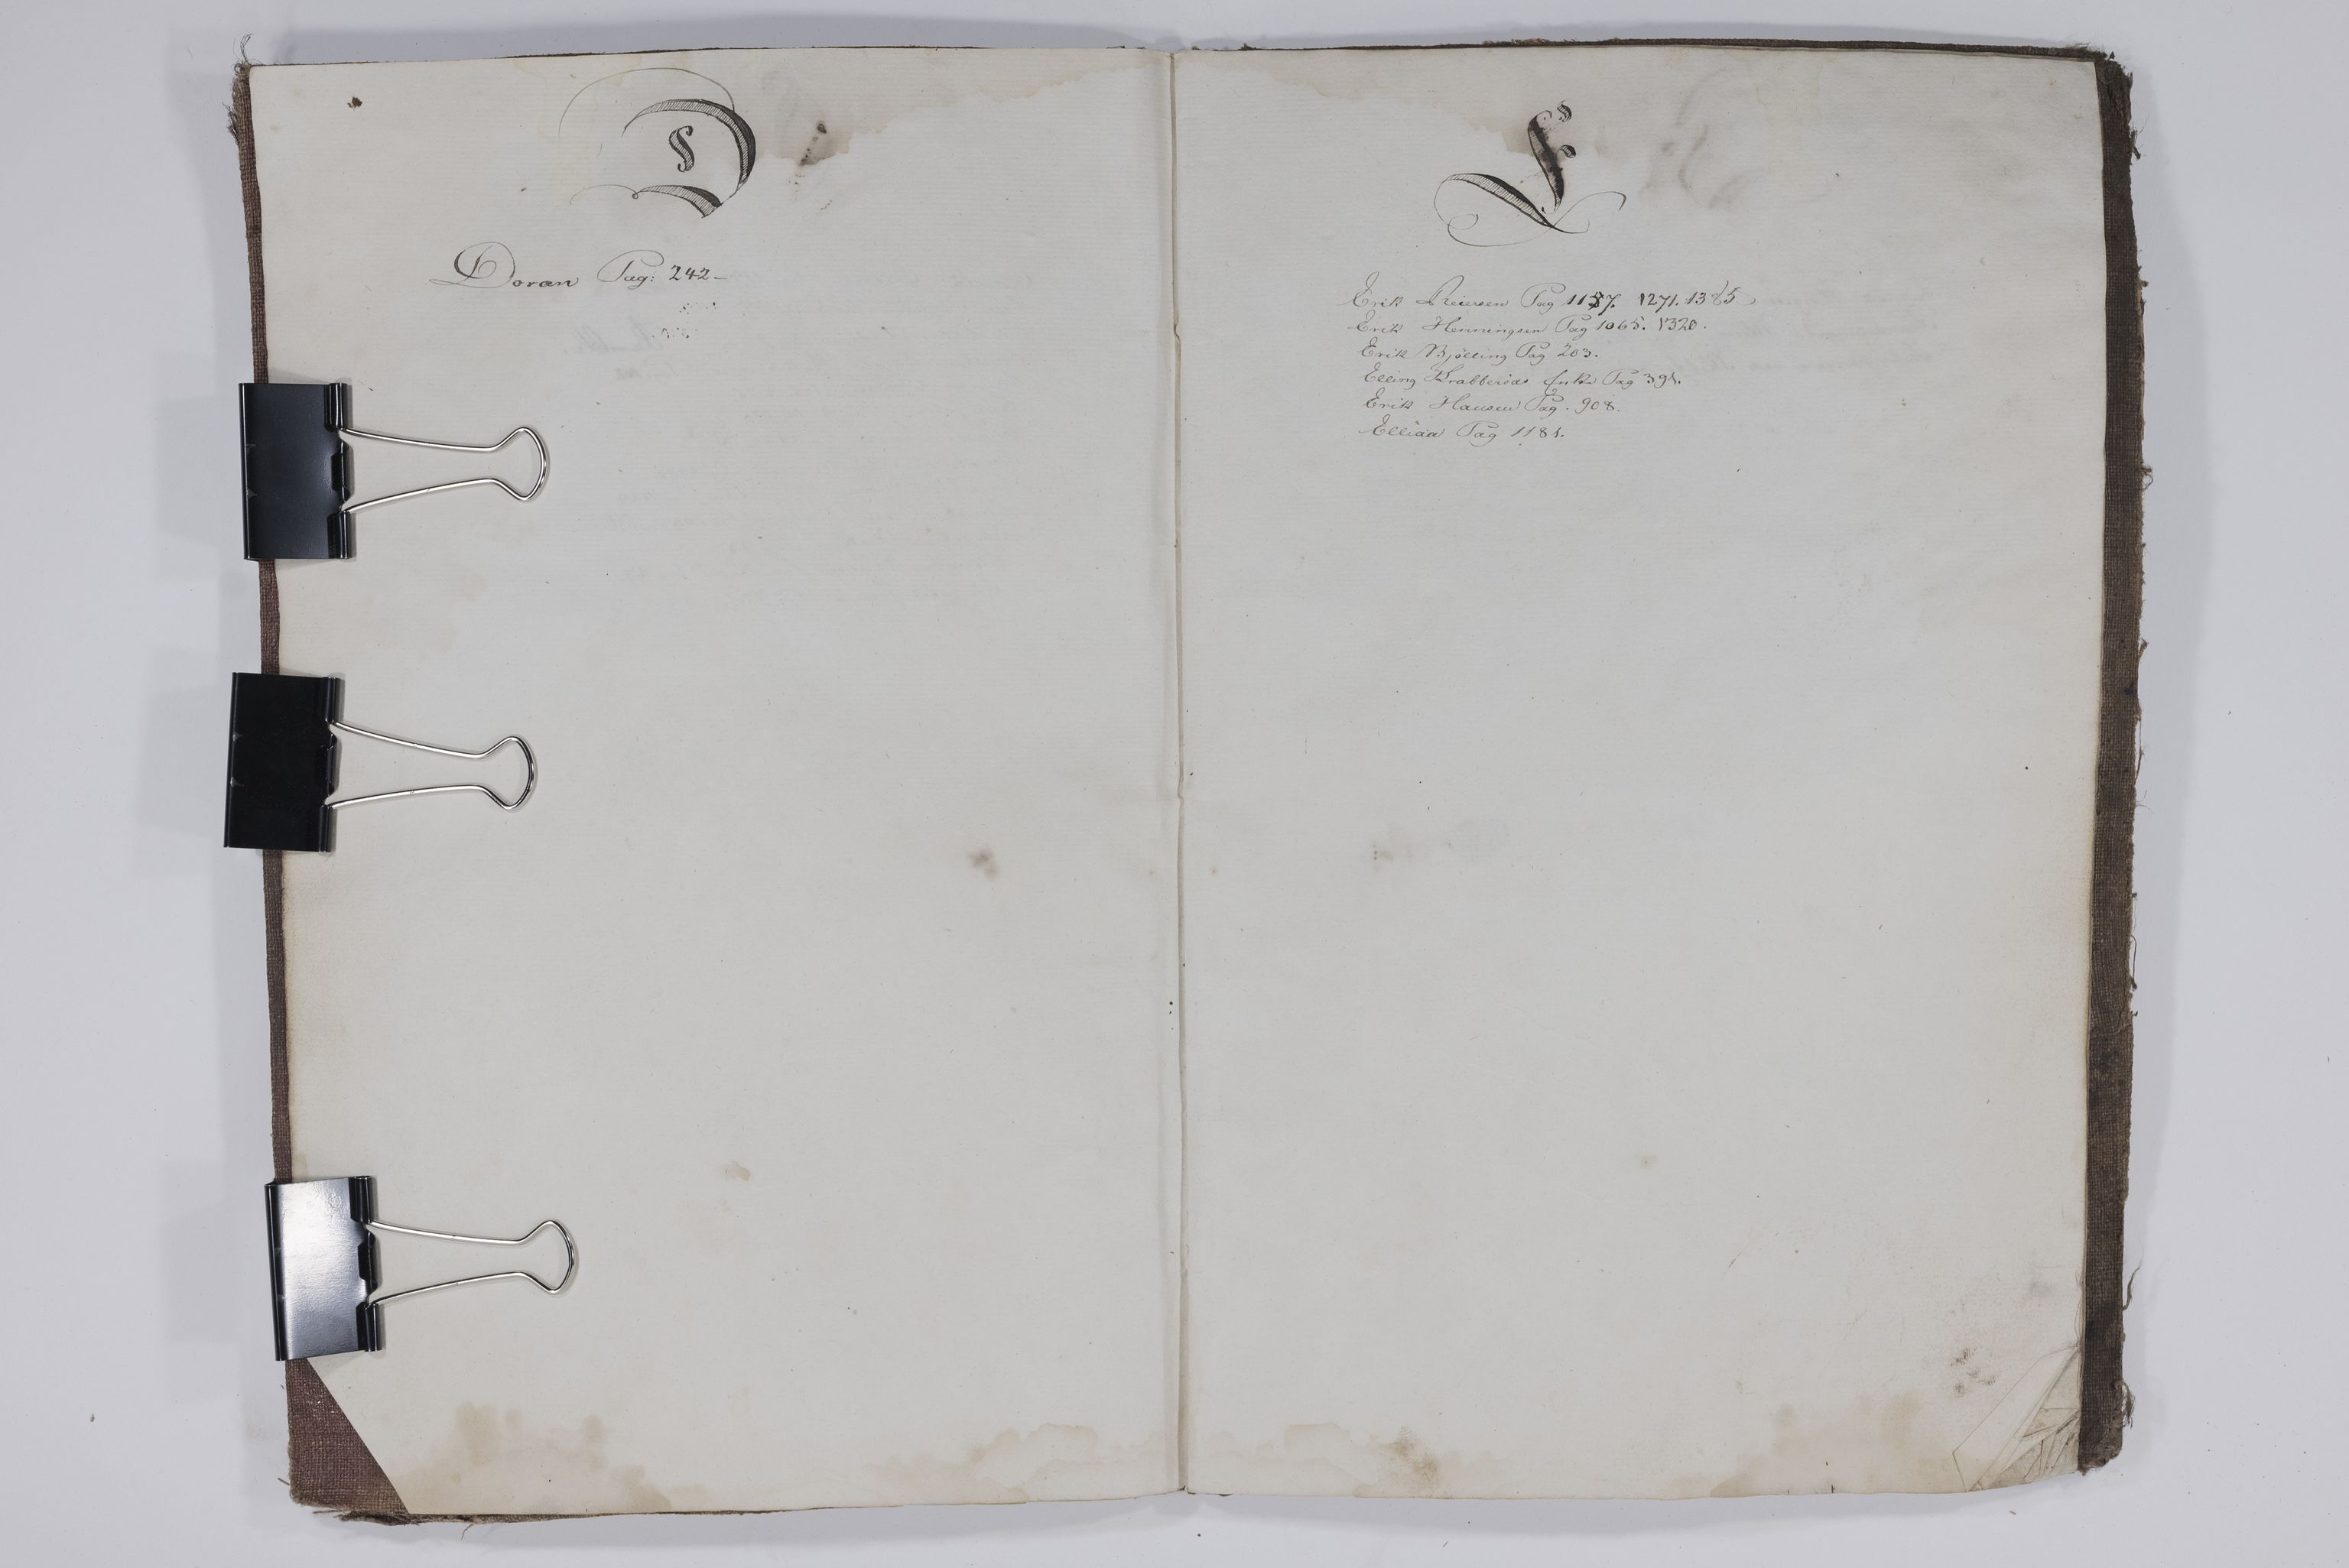 D
Doran Pag: 242 -
E
Erik Reiersen Pag 1137. 1271. 1385
Erik Henningsen Pag 1065. 1320.
Erik Bjölling Pag 203.
Elling Krabberöds Enke Pag 391.
Erik Hansen Pag. 908.
Elliaa Pag 1181.